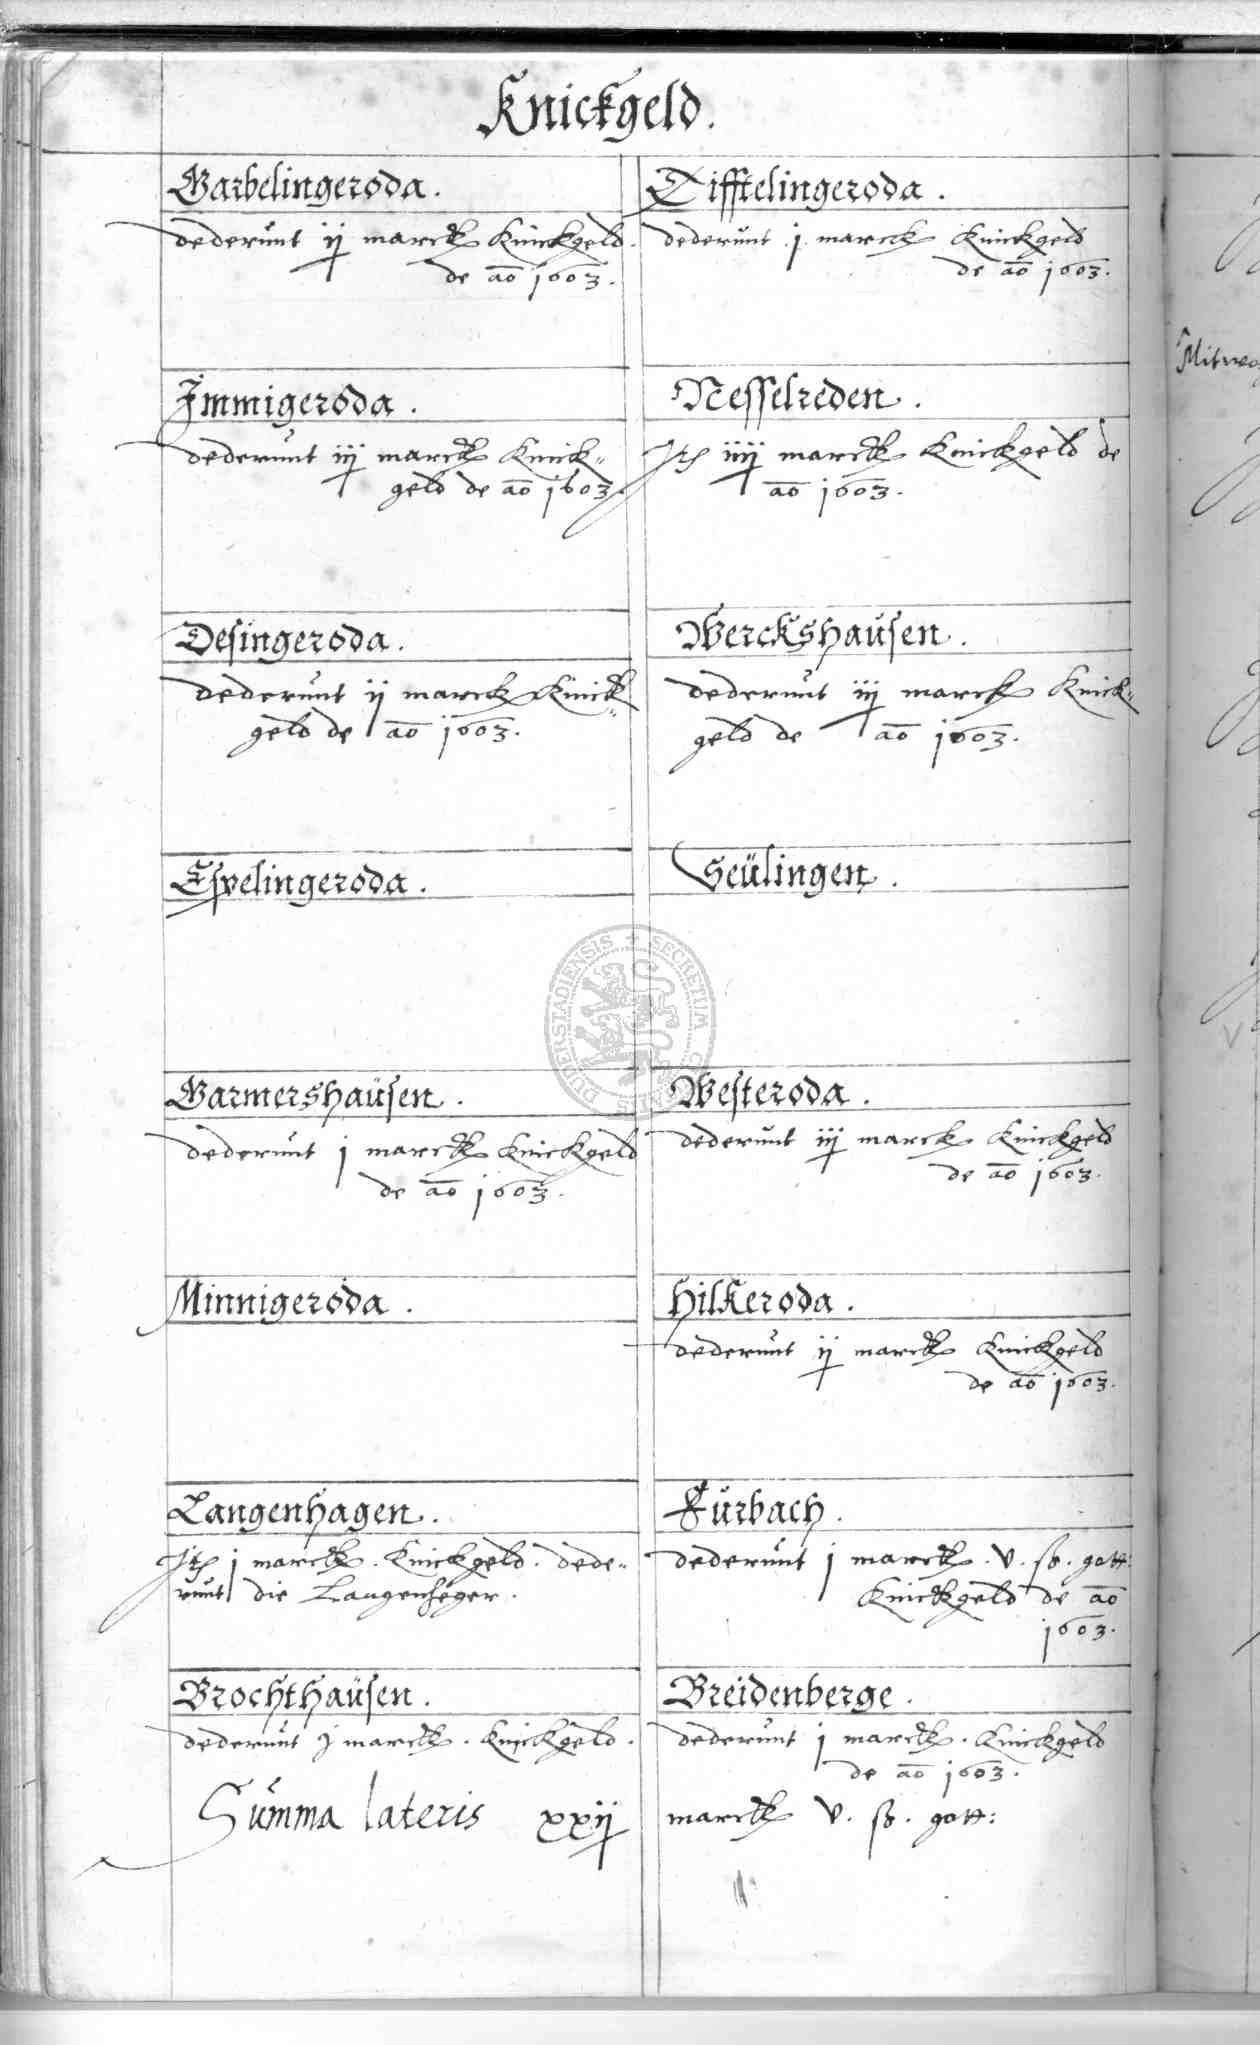 Knickgeld.
Garbelingeroda.
dederunt ij marck Knickgeld.
de ao 1603.
Immigeroda.
dederunt iij marck Knick-
geld de ao 1603.
Desingeroda.
dederunt ij marck Knick-
geld de ao 1603.
Espelingeroda.
Garmershaüsen.
dederunt j marck Knickgeld
de ao 1603.
Minnigeroda.
Langenhagen.
Itm j marck. Knickgeld. dede-
runt die Langenheger.
Brochthaüsen.
dederunt j marck. Knickgeld.
Tifftelingeroda.
dederunt j. marck Knickgeld
de ao 1603.
Nesselreden.
Itm iiij marck Knickgeld de
ao 1603.
Werckshausen.
dederunt iij marck Knick-
geld de ao 1603.
Seülingen.
Westeroda.
dederunt iij marck Knickgeld
de ao 1603.
Hilkeroda.
dederunt ij marck Knickgeld
de ao 1603.
Furbach.
dederunt j marck. v. ß. gott:
Knickgeld de ao
1603.
Breidenberge.
dederunt j marck. Knickgeld
de ao 1603.
Summa lateris xxij marck v. ß. gott:
DUDERSTADIENSIS SECRETUM